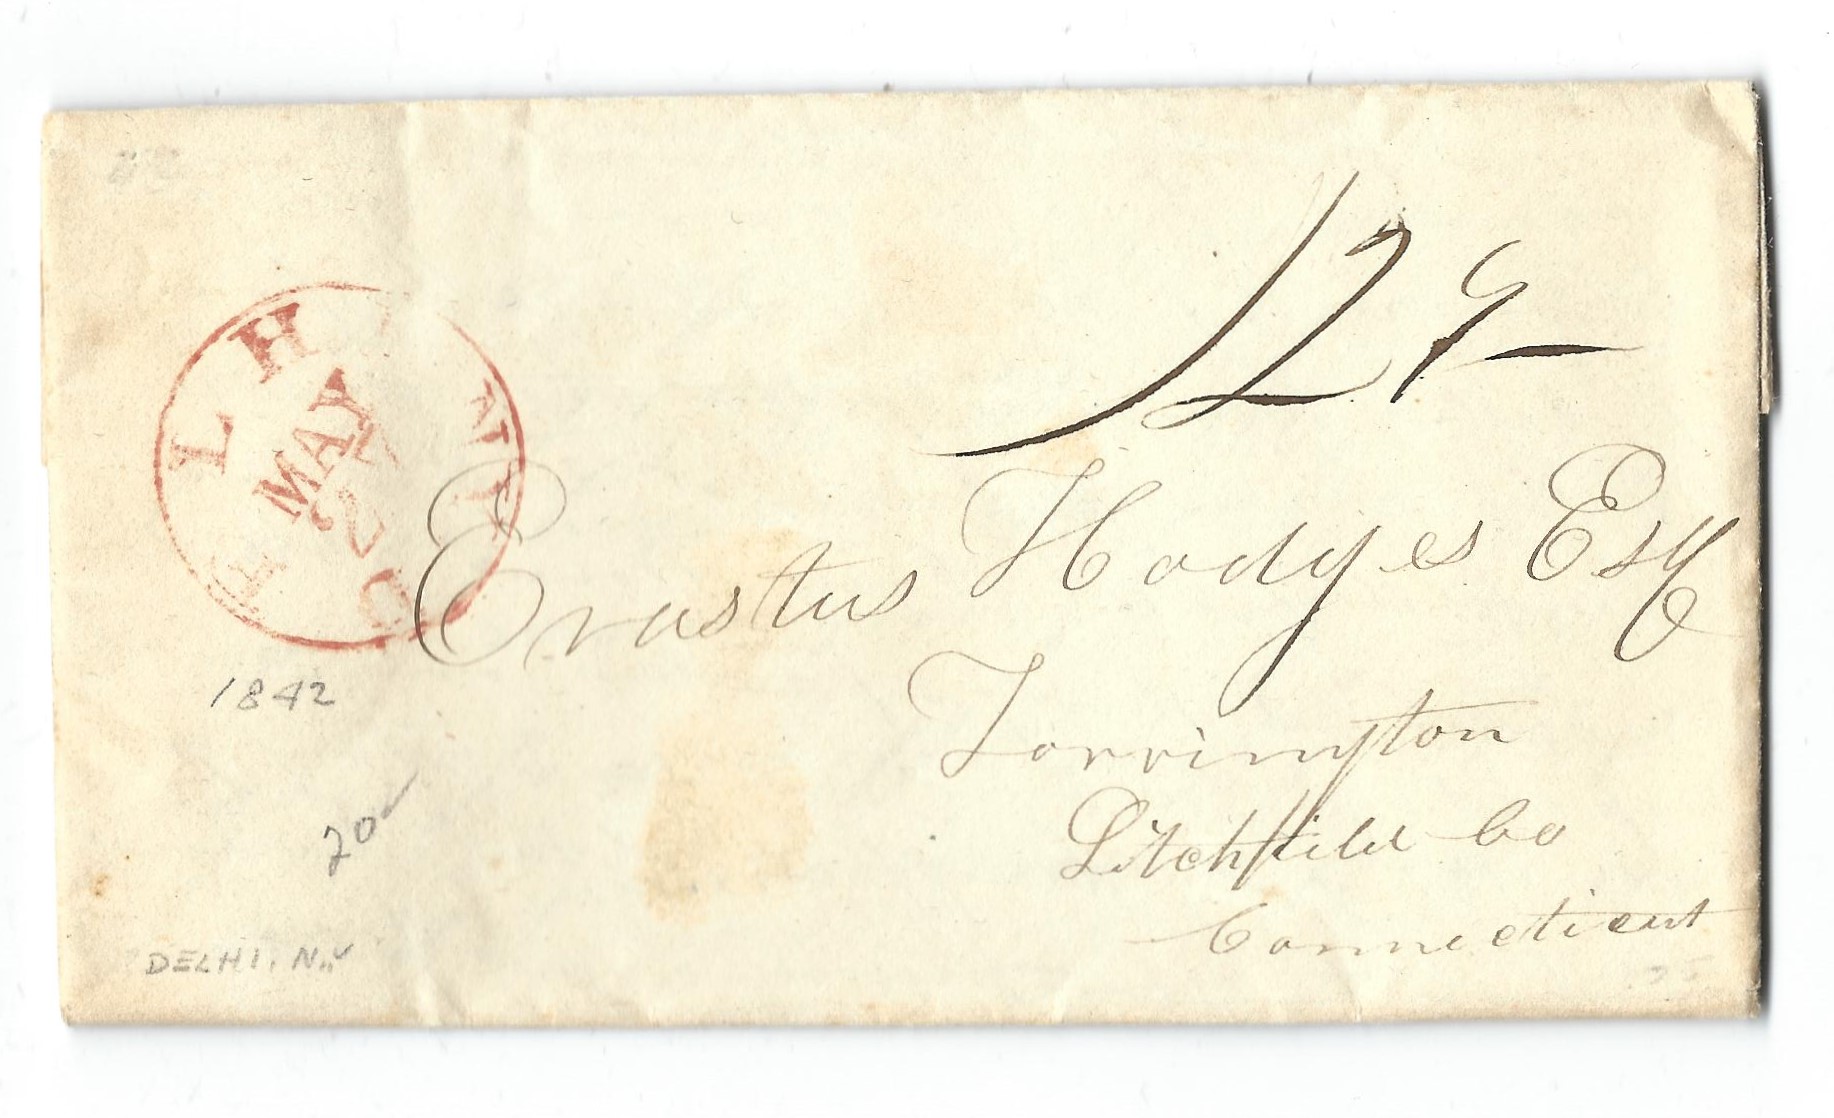 12 9
DELHI N.Y
MAY
2
Erastus Hodges Esq
Torrington
Litchfield Co
Connecticut
1842
20
DELHI. N.Y